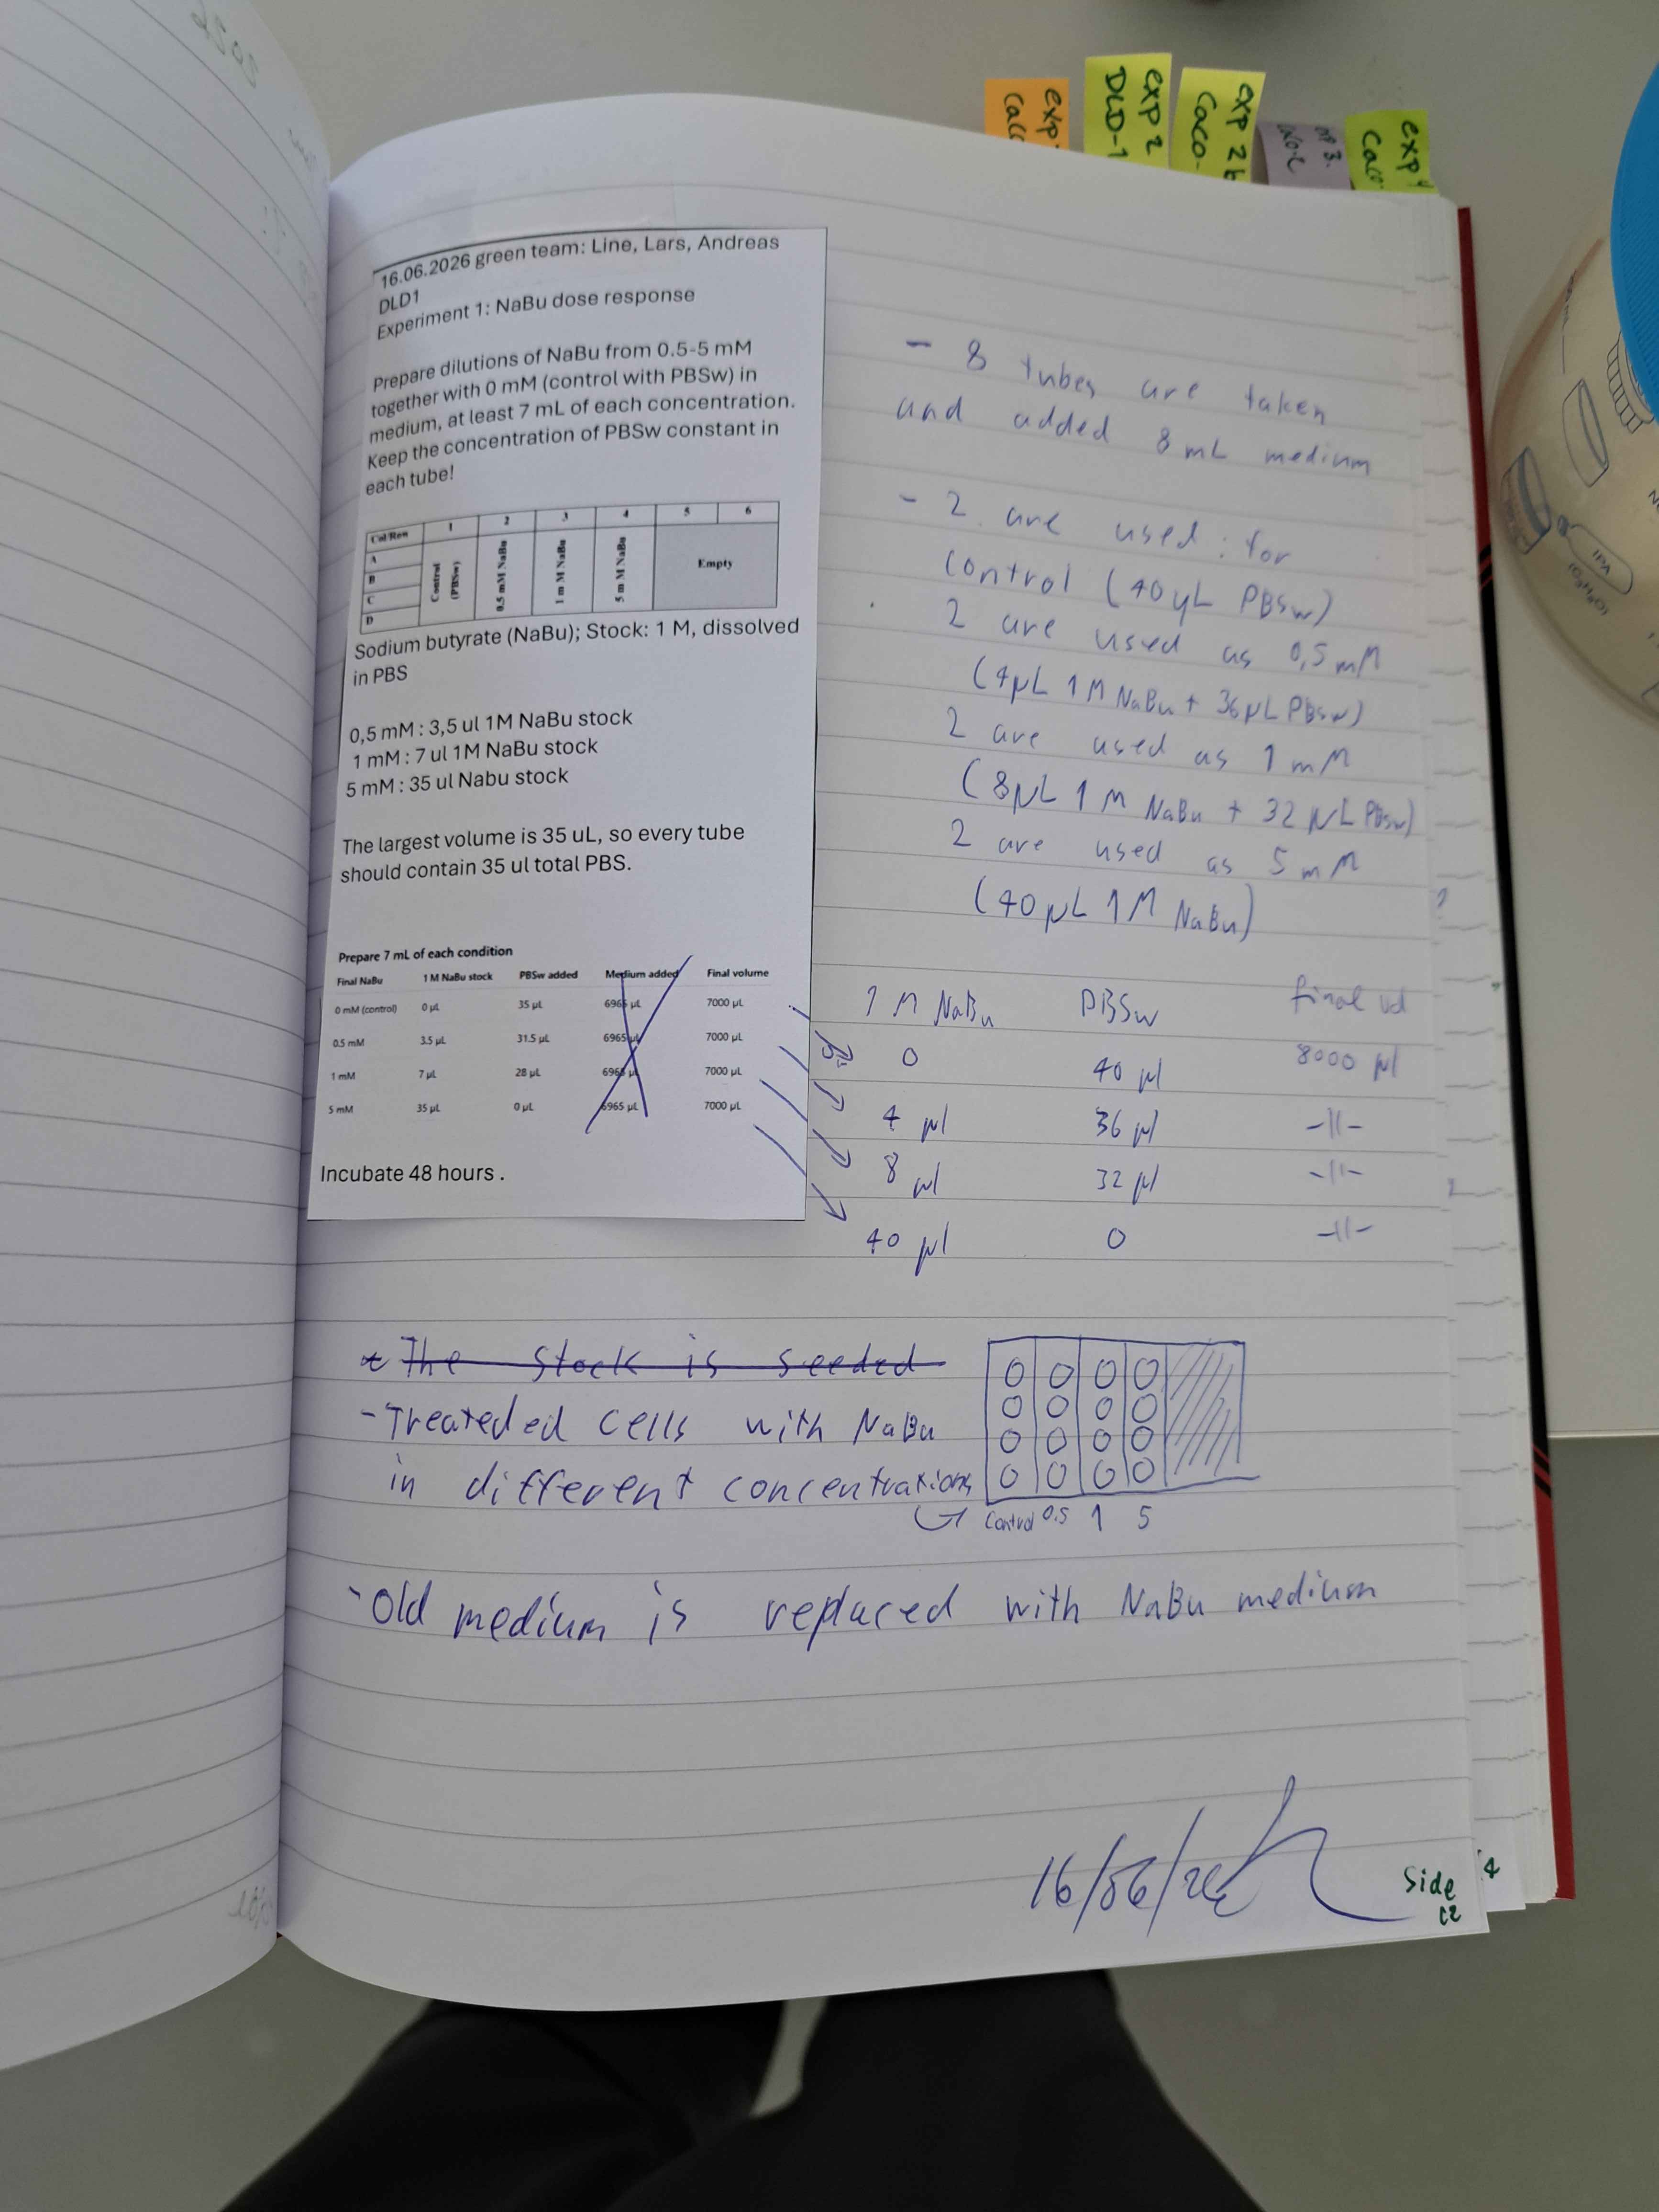 exp
Cac
exp 2
DLD-1
exp 2b
Caco-
exp 4
Caco
16.06.2026 green team: Line, Lars, Andreas
DLD1
Experiment 1: NaBu dose response
Prepare dilutions of NaBu from 0.5-5 mM
together with 0 mM (control with PBSw) in
medium, at least 7 mL of each concentration.
Keep the concentration of PBSw constant in
each tube!
Col/Row 1 2 3 4 5 6
A
B
C
D
Control (PBSw)
0.5 mM NaBu
1 m M NaBu
5 m M NaBu
Empty
Sodium butyrate (NaBu); Stock: 1 M, dissolved
in PBS
0,5 mM : 3,5 ul 1M NaBu stock
1 mM : 7 ul 1M NaBu stock
5 mM : 35 ul Nabu stock
The largest volume is 35 uL, so every tube
should contain 35 ul total PBS.
Prepare 7 mL of each condition
Final NaBu 1 M NaBu stock PBSw added Medium added Final volume
0 mM (control) 0 µL 35 µL 6965 µL 7000 µL
0.5 mM 3.5 µL 31.5 µL 6965 µL 7000 µL
1 mM 7 µL 28 µL 6965 µL 7000 µL
5 mM 35 µL 0 µL 6965 µL 7000 µL
Incubate 48 hours .
- 8 tubes are taken
and added 8 mL medium
- 2 are used for
control (40 µL PBSw)
2 are used as 0,5 mM
(4µL 1M NaBu + 36µL PBSw)
2 are used as 1 mM
(8µL 1 M NaBu + 32 µL PBSw)
2 are used as 5 mM
(40 µL 1M NaBu)
1 M NaBu PBSw final vol
0 40 µl 8000 µl
4 µl 36 µl -||-
8 µl 32 µl -||-
40 µl 0 -||-
The stock is seeded
- Treateded cells with NaBu
in different concentrations
Control 0.5 1 5
- Old medium is replaced with NaBu medium
16/06/26
Side
12
4
IPA
(C3H8O)